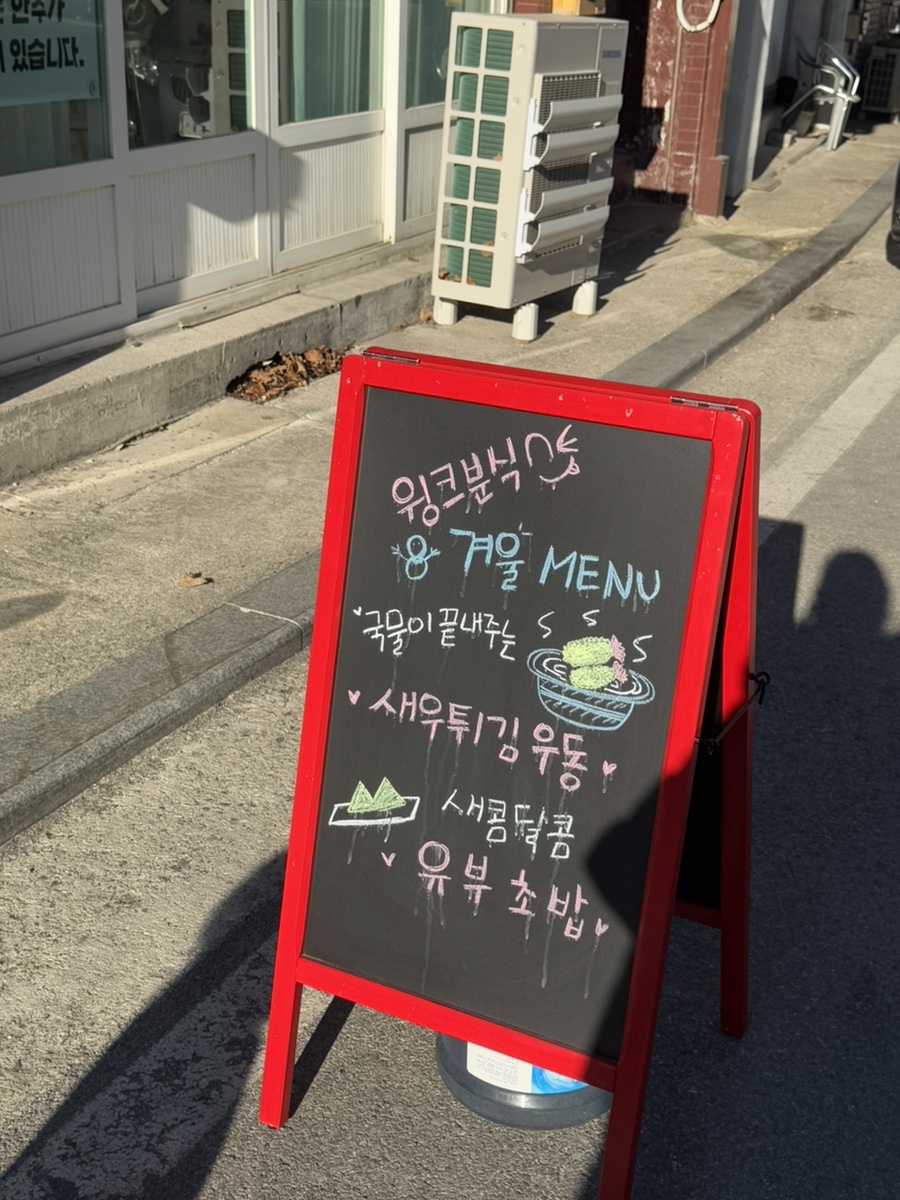 안주가
있습니다.
SAMSUNG
윙크분식
겨울 MENU
국물이 끝내주는
새우튀김 우동
새콤달콤
유부초밥